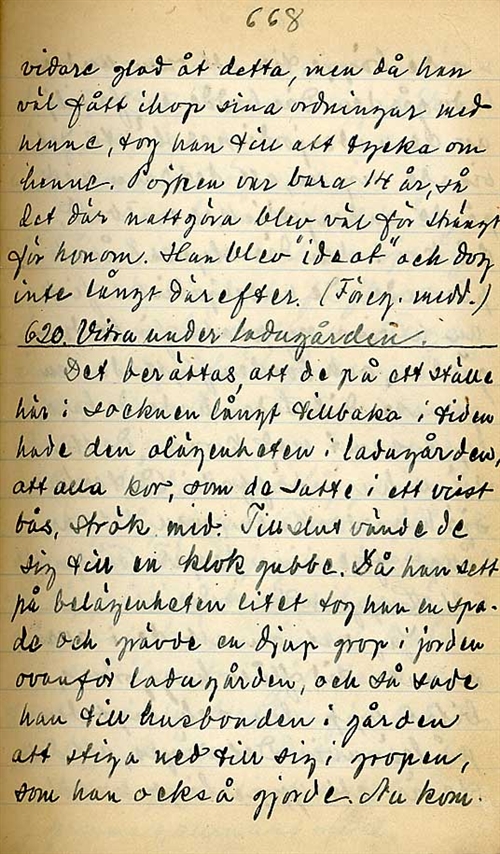 668
vidare glad åt detta, men då han
väl fått ihop sina ordningar med
henne, tog han till att tycka om
henne. Pojken var bara 14 år, så
det där nattgöra blev väl för strängt
för honom. Han blev "ideot" och dog
inte långt därefter. (Föreg. medd.)
620. Vitra under ladugården.
Det berättas, att de på ett ställe
här i socknen långt tillbaka i tiden
hade den olägenheten i ladugården,
att alla kor, som de satte i ett visst
bås, strök med. Till slut vände de
sig till en klok gubbe. Då han sett
på belägenheten litet tog han en spa-
de och grävde en djup grop i jorden
ovanför ladugården, och så sade
han till husbonden i gården
att stiga ned till sig i gropen,
som han också gjorde. Nu kom